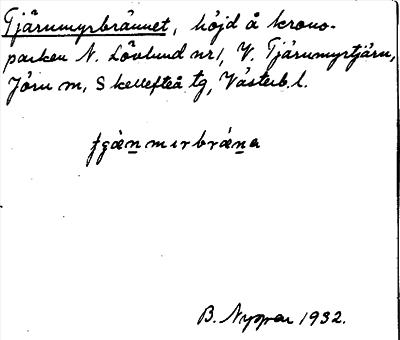 Tjärnmyrbrännet, höjd å krono-
parken N. Lövlund nr 1, V. Tjärnmyrtjärn,
Jörn sn, Skellefteå tg, Västerb. l.
B. Nyman 1932.